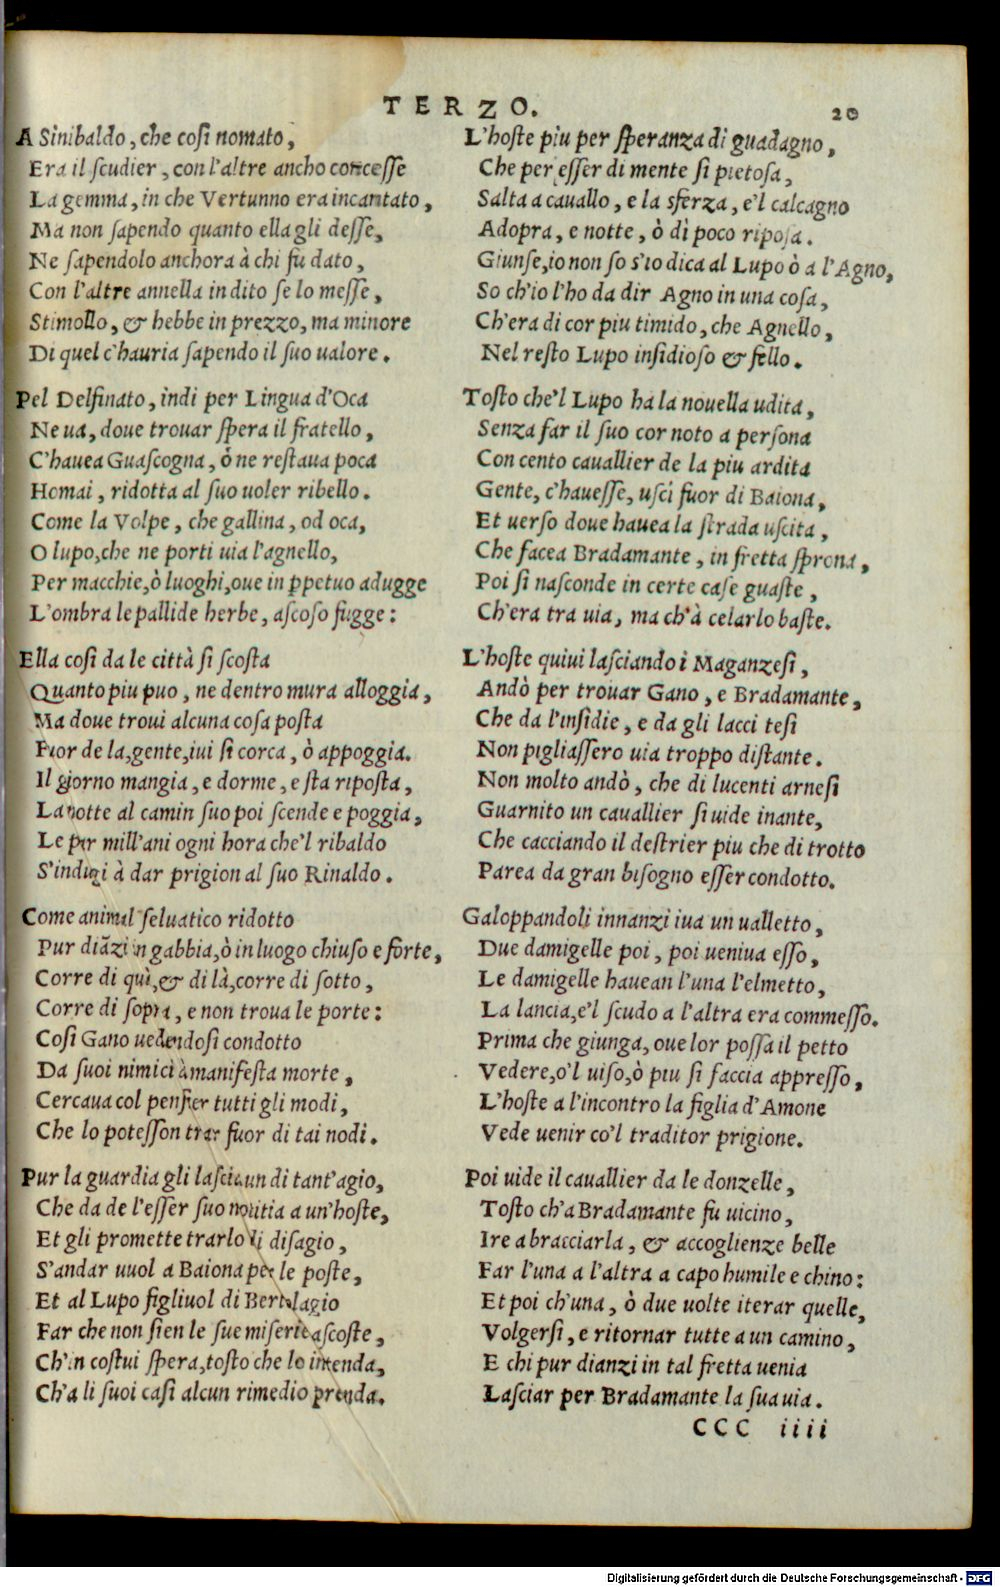 TERZO.
20
A Sinibaldo, che cosi nomato,
Era il scudier, con l'altre ancho concesse
La gemma, in che Vertunno era incantato,
Ma non sapendo quanto ella gli desse,
Ne sapendolo anchora à chi fu dato,
Con l'altre annella in dito se lo messe,
Stimollo, & hebbe in prezzo, ma minore
Di quel c'hauria sapendo il suo ualore.
Pel Delfinato, indi per Lingua d'Oca
Ne ua, doue trouar spera il fratello,
C'hauea Guascogna, ò ne restaua poca
Homai, ridotta al suo uoler ribello.
Come la Volpe, che gallina, od oca,
O lupo, che ne porti uia l'agnello,
Per macchie, ò luoghi, oue in ꝑpetuo adugge
L'ombra le pallide herbe, ascoso fugge:
Ella cosi da le città si scosta
Quanto piu puo, ne dentro mura alloggia,
Ma doue troui alcuna cosa posta
Fuor de la, gente, iui si corca, ò appoggia.
Il giorno mangia, e dorme, e sta riposta,
La notte al camin suo poi scende e poggia,
Le par mill'ani ogni hora che'l ribaldo
S'indugi à dar prigion al suo Rinaldo.
Come animal seluatico ridotto
Pur diãzi in gabbia, ò in luogo chiuso e forte,
Corre di quì, & di là, corre di sotto,
Corre di sopra, e non troua le porte:
Cosi Gano uedendosi condotto
Da suoi nimici à manifesta morte,
Cercaua col pensier tutti gli modi,
Che lo potesson trar fuor di tai nodi.
Pur la guardia gli lascia un di tant'agio,
Che da de l'esser suo notitia a un'hoste,
Et gli promette trarlo di disagio,
S'andar uuol a Baiona per le poste,
Et al Lupo figliuol di Bertolagio
Far che non sien le sue miserie ascoste,
Ch'in costui spera, tosto che lo intenda,
Ch'a li suoi casi alcun rimedio prenda.
L'hoste piu per speranza di guadagno,
Che per esser di mente si pietosa,
Salta a cauallo, e la sferza, e'l calcagno
Adopra, e notte, ò dì poco riposa.
Giunse, io non so s'io dica al Lupo ò a l'Agno,
So ch'io l'ho da dir Agno in una cosa,
Ch'era di cor piu timido, che Agnello,
Nel resto Lupo insidioso & fello.
Tosto che'l Lupo ha la nouella udita,
Senza far il suo cor noto a persona
Con cento cauallier de la piu ardita
Gente, c'hauesse, uscì fuor di Baiona,
Et uerso doue hauea la strada uscita,
Che facea Bradamante, in fretta sprona,
Poi si nasconde in certe case guaste,
Ch'era tra uia, ma ch'à celarlo baste.
L'hoste quiui lasciando i Maganzesi,
Andò per trouar Gano, e Bradamante,
Che da l'insidie, e da gli lacci tesi
Non pigliassero uia troppo distante.
Non molto andò, che di lucenti arnesi
Guarnito un cauallier si uide inante,
Che cacciando il destrier piu che di trotto
Parea da gran bisogno esser condotto.
Galoppandoli innanzi iua un ualletto,
Due damigelle poi, poi ueniua esso,
Le damigelle hauean l'una l'elmetto,
La lancia, e'l scudo a l'altra era commesso.
Prima che giunga, oue lor possa il petto
Vedere, o'l uiso, ò piu si faccia appresso,
L'hoste a l'incontro la figlia d'Amone
Vede uenir co'l traditor prigione.
Poi uide il cauallier da le donzelle,
Tosto ch'a Bradamante fu uicino,
Ire abracciarla, & accoglienze belle
Far l'una a l'altra a capo humile e chino:
Et poi ch'una, ò due uolte iterar quelle,
Volgersi, e ritornar tutte a un camino,
E chi pur dianzi in tal fretta uenia
Lasciar per Bradamante la sua uia.
CCC iiii
Digitalisierung gefördert durch die Deutsche Forschungsgemeinschaft - DFG